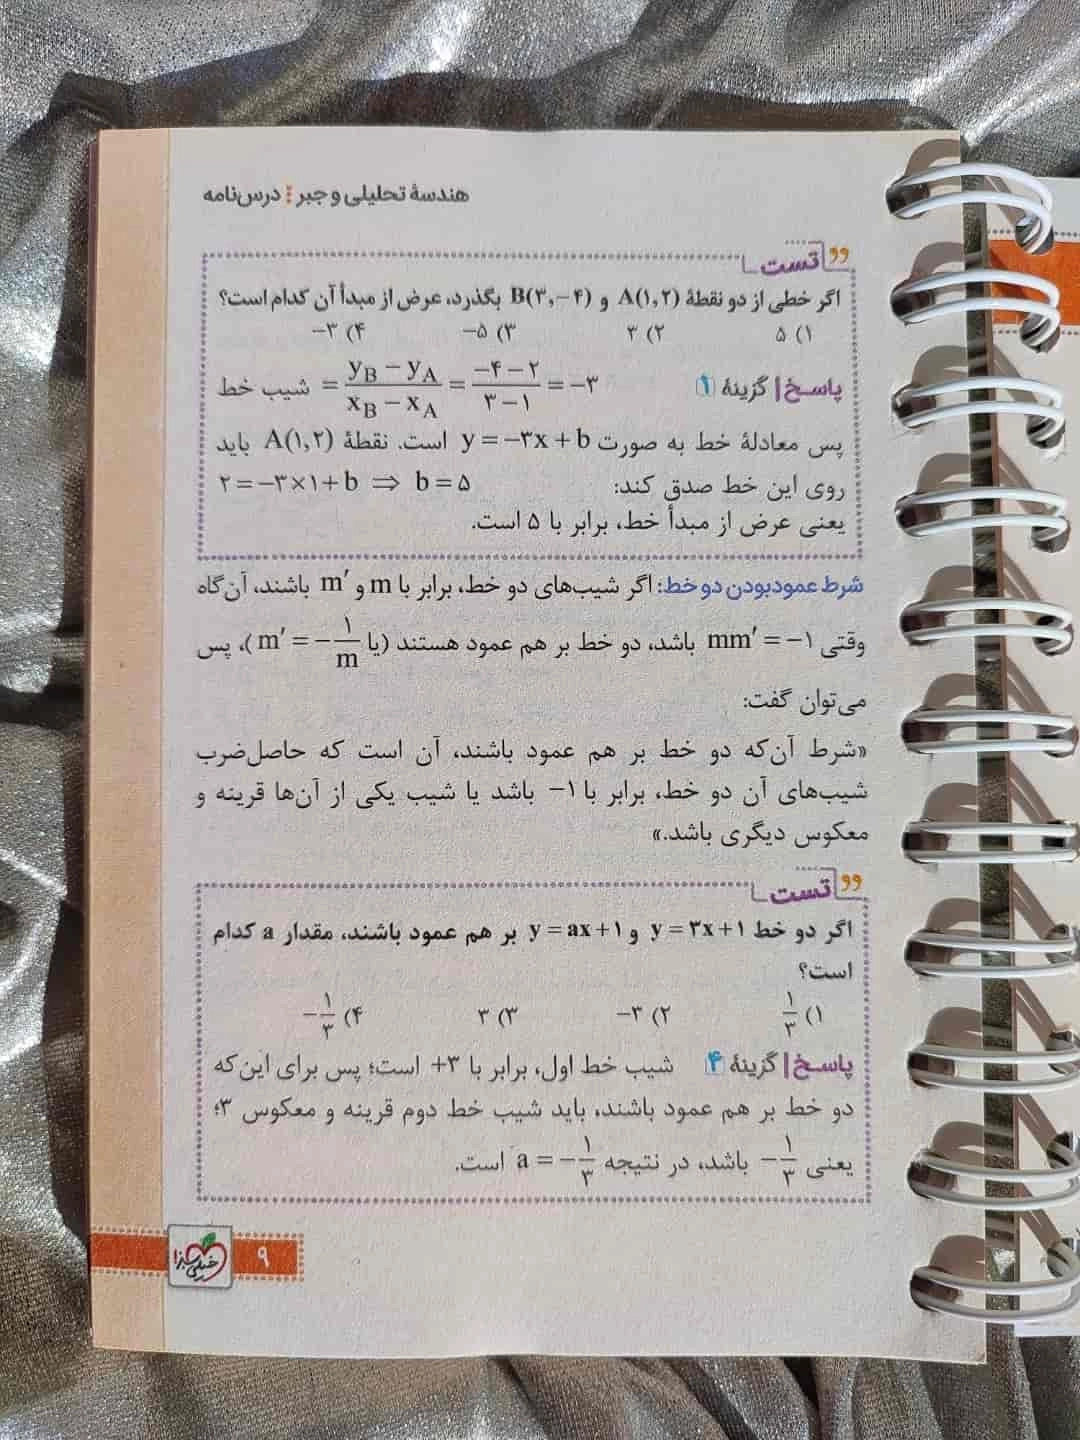 هندسهٔ تحلیلی و جبر ⁝ درس‌نامه
تست
اگر خطی از دو نقطهٔ A(۱,۲) و B(۳,−۴) بگذرد، عرض از مبدأ آن کدام است؟
۱) ۵ ۲) ۳ ۳) −۵ ۴) −۳
پاسخ | گزینهٔ ۱ شیب خط = (yB − yA)/(xB − xA) = (−۴−۲)/(۳−۱) = −۳
پس معادلهٔ خط به صورت y = −۳x + b است. نقطهٔ A(۱,۲) باید
روی این خط صدق کند: ۲ = −۳×۱+b ⇒ b = ۵
یعنی عرض از مبدأ خط، برابر با ۵ است.
شرط عمودبودن دو خط: اگر شیب‌های دو خط، برابر با m و m′ باشند، آن‌گاه
وقتی mm′ = −۱ باشد، دو خط بر هم عمود هستند (یا m′ = −۱/m)، پس
می‌توان گفت:
«شرط آن‌که دو خط بر هم عمود باشند، آن است که حاصل‌ضرب
شیب‌های آن دو خط، برابر با ۱− باشد یا شیب یکی از آن‌ها قرینه و
معکوس دیگری باشد.»
تست
اگر دو خط y = ۳x+۱ و y = ax+۱ بر هم عمود باشند، مقدار a کدام
است؟
۱) ۱/۳ ۲) −۳ ۳) ۳ ۴) −۱/۳
پاسخ | گزینهٔ ۴ شیب خط اول، برابر با ۳+ است؛ پس برای این‌که
دو خط بر هم عمود باشند، باید شیب خط دوم قرینه و معکوس ۳؛
یعنی −۱/۳ باشد، در نتیجه a = −۱/۳ است.
خیلی سبز
۹